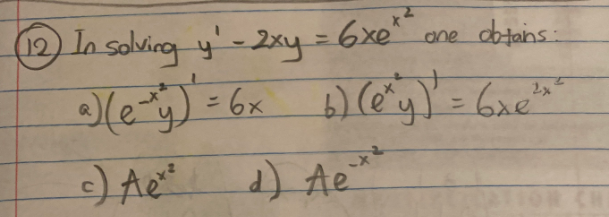 (12) In solving y' - 2xy = 6xe^{x^2} one obtains:
a) (e^{-x^2}y)' = 6x b) (e^{x^2}y)' = 6xe^{2x^2}
c) Ae^{x^2} d) Ae^{-x^2}